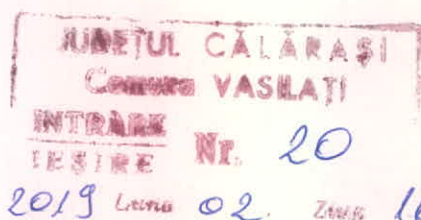 JUDEȚUL CĂLĂRAȘI
Comuna VASILAȚI
INTRARE
IEȘIRE Nr. 20
2019 Luna 02. Ziua